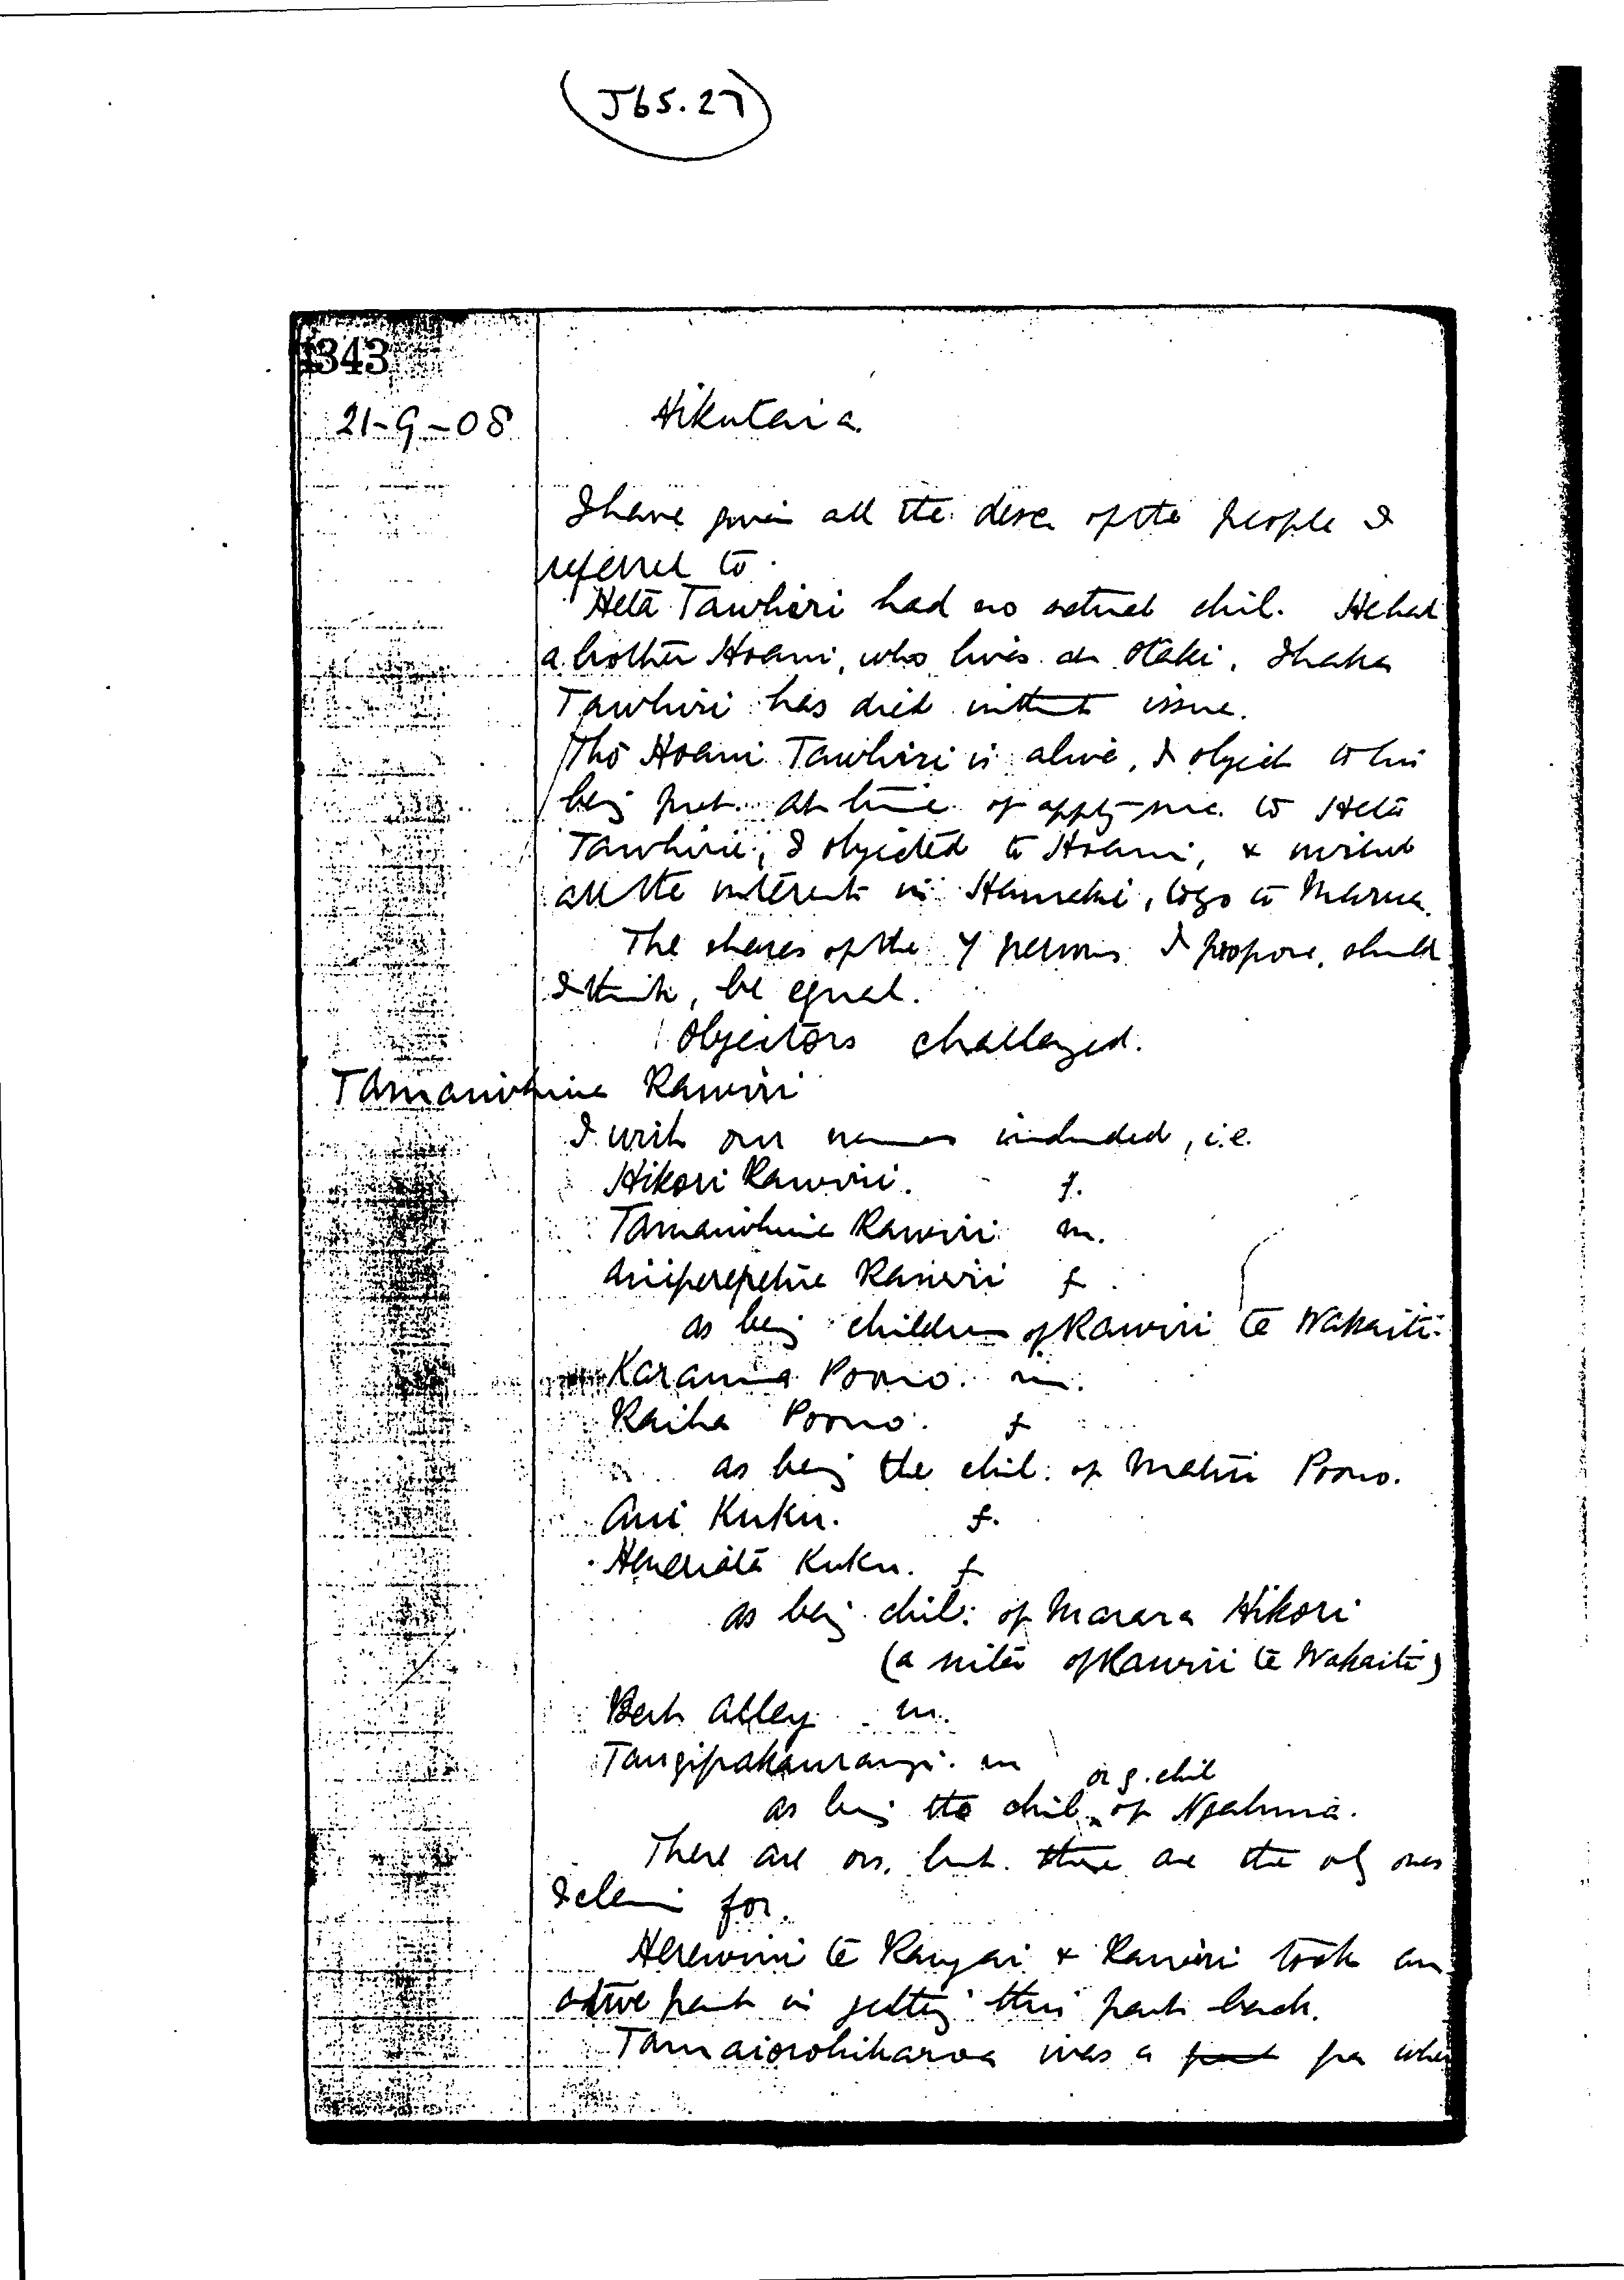 (J65.27)
343
21-9-08
Hikutaia
I have given all the desc. of the people I
referred to.
Heta Tawhiri had no actual chil. He had
a brother Hoani, who lives at Otaki. Ihaka
Tawhiri has died without issue.
Tho Hoani Tawhiri is alive, I object to his
being put. At time of apptg suc. to Heta
Tawhiri, I objected to Hoani, &
all the interests in Hauraki, to go to Marua.
The shares of the 7 persons I propose, should
I think, be equal.
Objectors challenged.
Tamaiwhina Rawiri
I wish our names included, i.e.
Hikori Rawiri. f.
Tamaiwhina Rawiri m.
Rawiri f.
as being children of Rawiri te Wakaiti.
Karauna Pono. m.
Raiha Pono. f
as being the chil: of Matiu Pono.
Ani Kuku. f.
Henerieta Kuku. f
as being chil: of Marara Hikori
(a sister of Rawiri te Wakaiti)
Bert Alley m.
Tangipahaurangi. m
or g. chil
as being the chil. of Ngahuia.
There are ors. but these are the only ones
I claim for.
Herewini te Rangai & Rawiri took an
active part in getting this part back.
was a part pa when